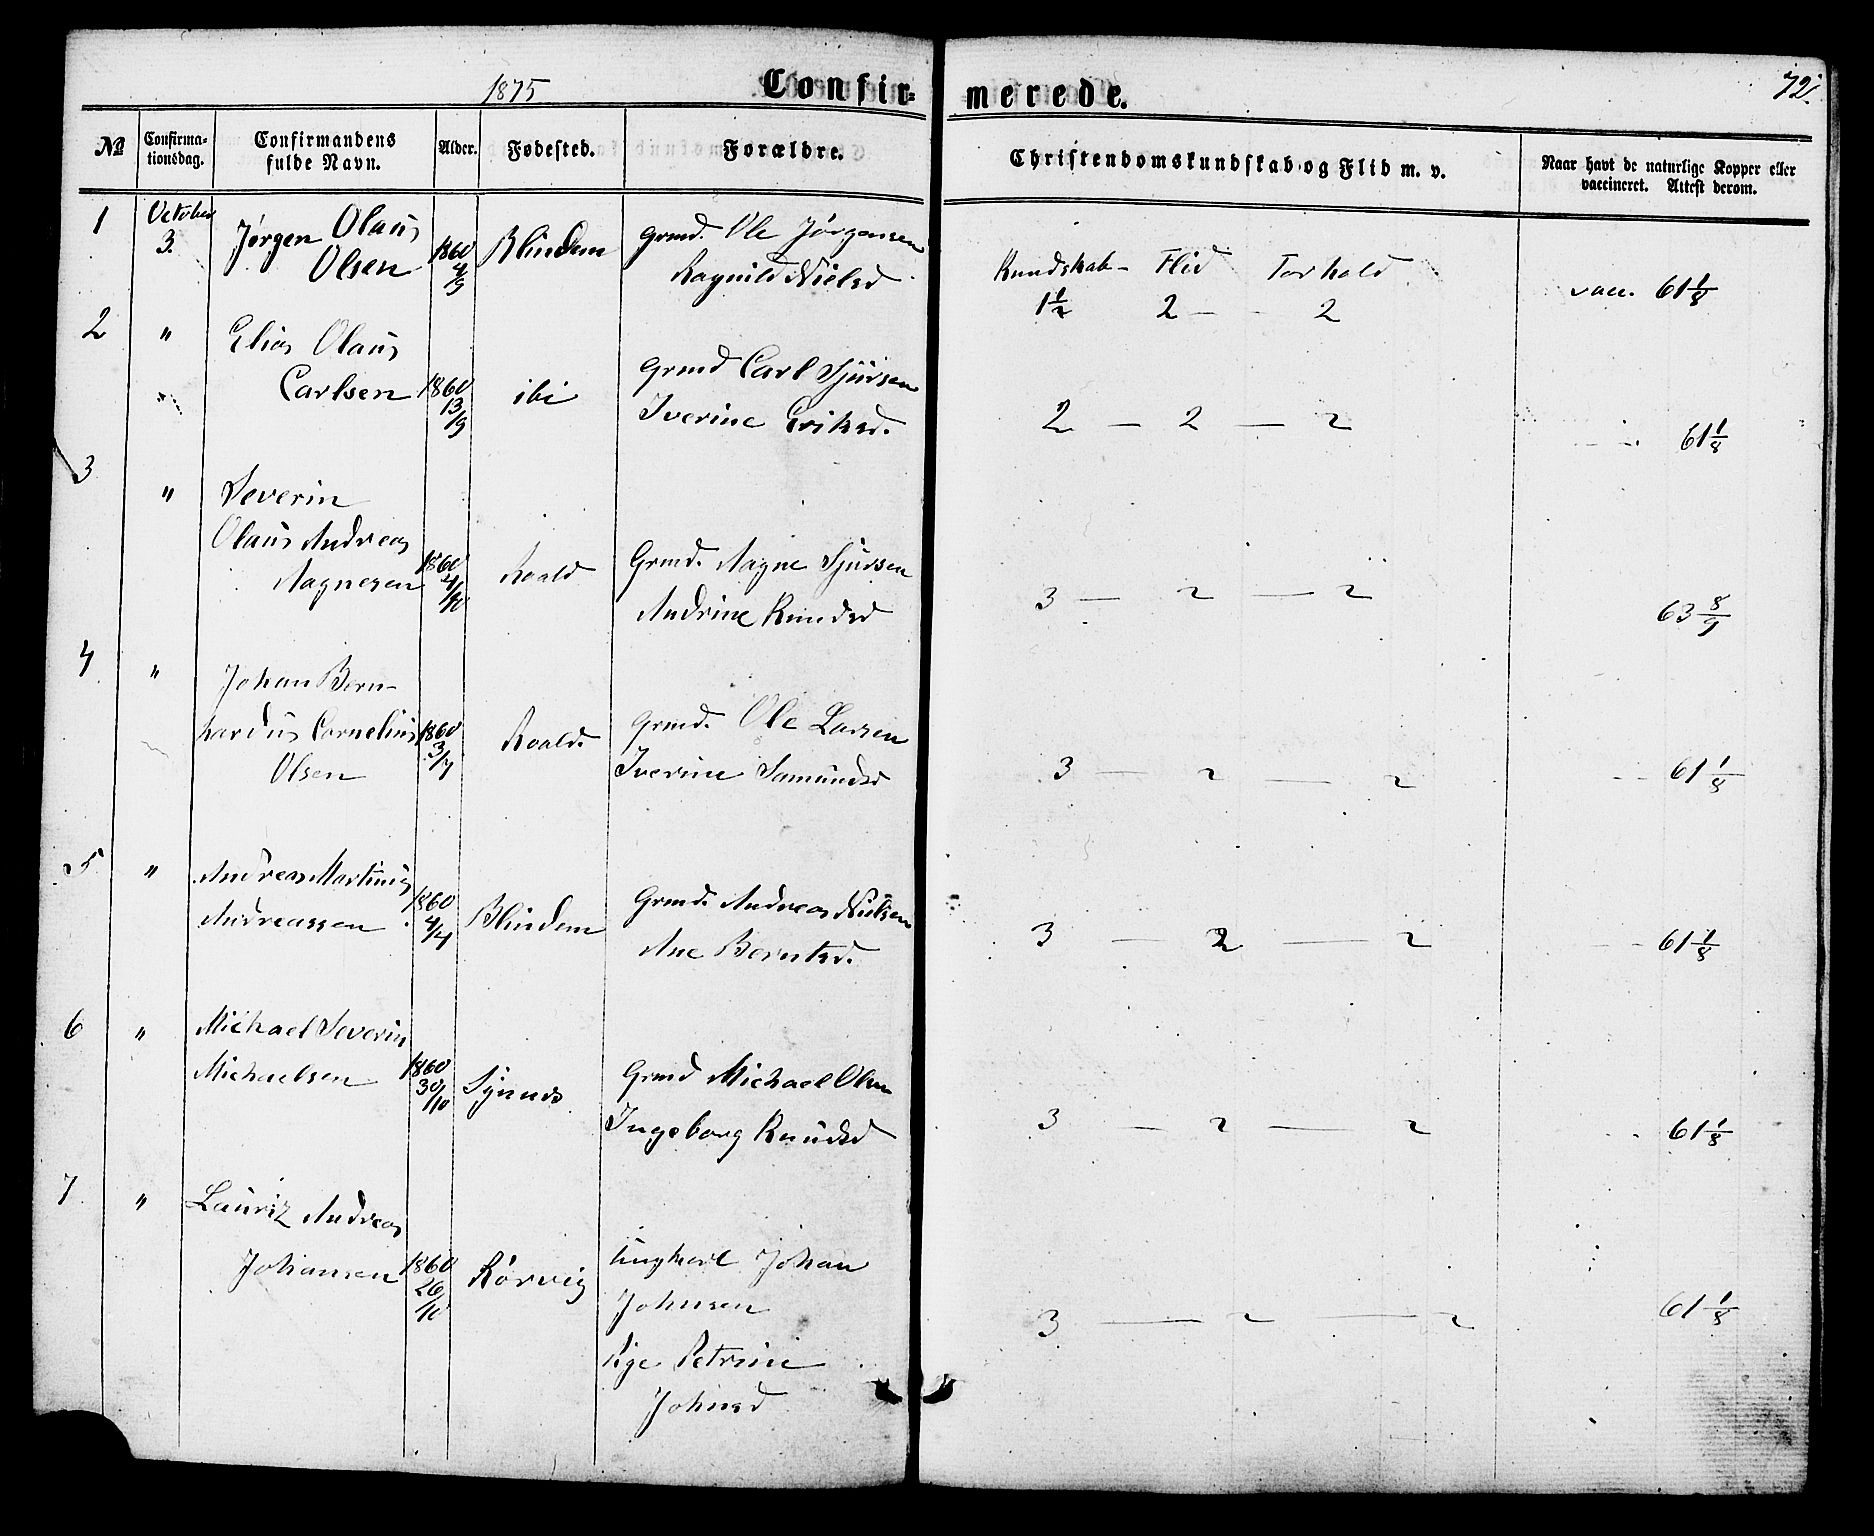 1875
Confir-
merede.
72.
№
Confirma-
tionsdag.
Confirmandens
fulde Navn.
Alder.
Fødested.
Forældre.
Christendomskundskab og Flid m. v.
Naar havt de naturlige Kopper eller
vaccineret. Attest derom.
1 October 3. Jørgen Olaus
Olsen 1860 4/9 Blindem Grmd. Ole Jørgensen
Ragnild Nielsd
Kundskab - Flid Forhold
1½ 2 - - 2 vacc. 61 1/8
2 " Elias Olaus
Carlsen 1860 13/9 ibi Grmd Carl Sjursen
Iverine Eriksd. 2 — 2 — 2 61 1/8
3 " Severin
Olaus Andreas
Aagnesen 1860 Roald Grmd. Aagne Sjursen
Andrine Knudsd 3 — 2 — 2 63 8/9
4 " Johan Bern-
hardus Cornelius
Olsen 1860 3/7 Roald. Grmd. Ole Larsen
Iverine Samundsd 3 — 2 — 2 61 1/8
5 " Andreas Martinus
Andreassen 1860 4/4 Blindem Grmd. Andreas Nielsen
Ane Berntsd. 3 — 2 — 2 61 1/8
6 " Michael Severin
Michaelsen 1860 30/10 Synnes Grmd Michael Olsen
Ingeborg Knudsd 3 — 2 — 2 61 1/8
7 " Lauriz Andreas
Johansen 1860 26/10 Rørvig Ungkarl Johan
Johnsen
Pige Petrine
Johnsd 3 — 2 — 2 61 1/8